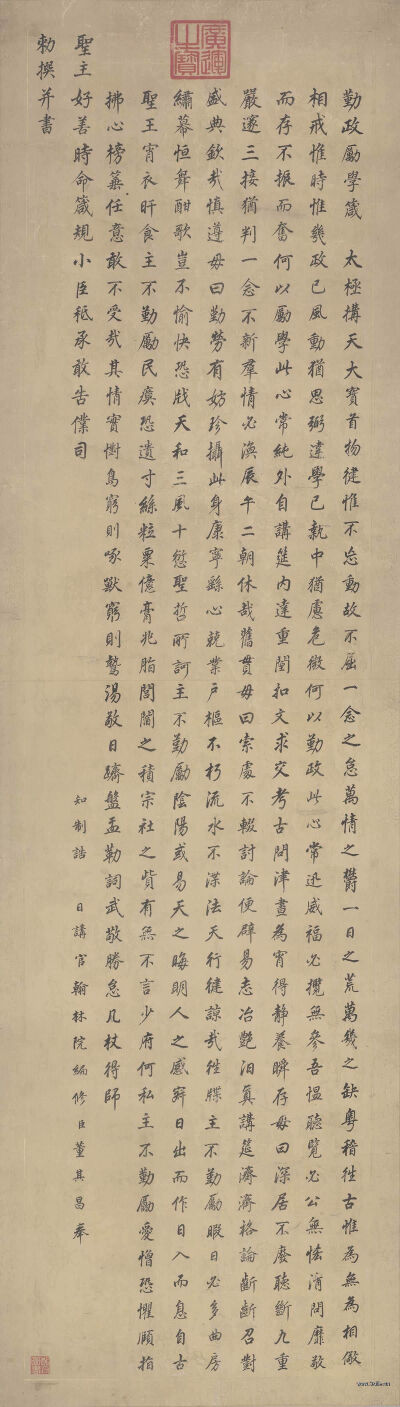 廣運之寶
勤政勵學箴 太極搆天大寶首物健惟不息動故不屈一念之怠萬情之欝一日之荒萬幾之缺粵稽往古惟為無為相儆
相戒惟時惟幾政已風動猶思弼違學已執中猶慮危微何以勤政此心常迅威福必攬無參吾慍聽覽必公無恡清問靡敬
而存不振而奮何以勵學此心常純外自講筵內達重闈扣文求交考古問津晝為宵得靜養瞬存毋曰深居不廢聽斷九重
嚴邃三接猶判一念不新羣情必渙辰午二朝休哉舊貫毋曰索處不輟討論便辟易志冶艷汩真講筵濟濟格論齗齗召對
盛典欽哉慎遵毋曰勤勞有妨珍攝此身康寧繇心兢業戶樞不朽流水不渫法天行健諒哉往牒主不勤勵暇日必多曲房
繡幕恒舞酣歌豈不愉快恐戕天和三風十愆聖哲所訶主不勤勵陰陽或易天之晦明人之感寐日出而作日入而息自古
聖王宵衣旰食主不勤勵民瘼恐遺寸絲粒粟億膏兆脂閭閻之積宗社之貲有無不言少府何私主不勤勵愛憎恐懼頤指
拂心榜箠任意敢不受哉其情實懟鳥窮則啄獸窮則鷙湯敬日躋盤盂勒詞武敬勝怠几杖得師
聖主好善時命箴規小臣秪承敢告僕司
知制誥 日講官翰林院編修臣董其昌奉
勅撰并書